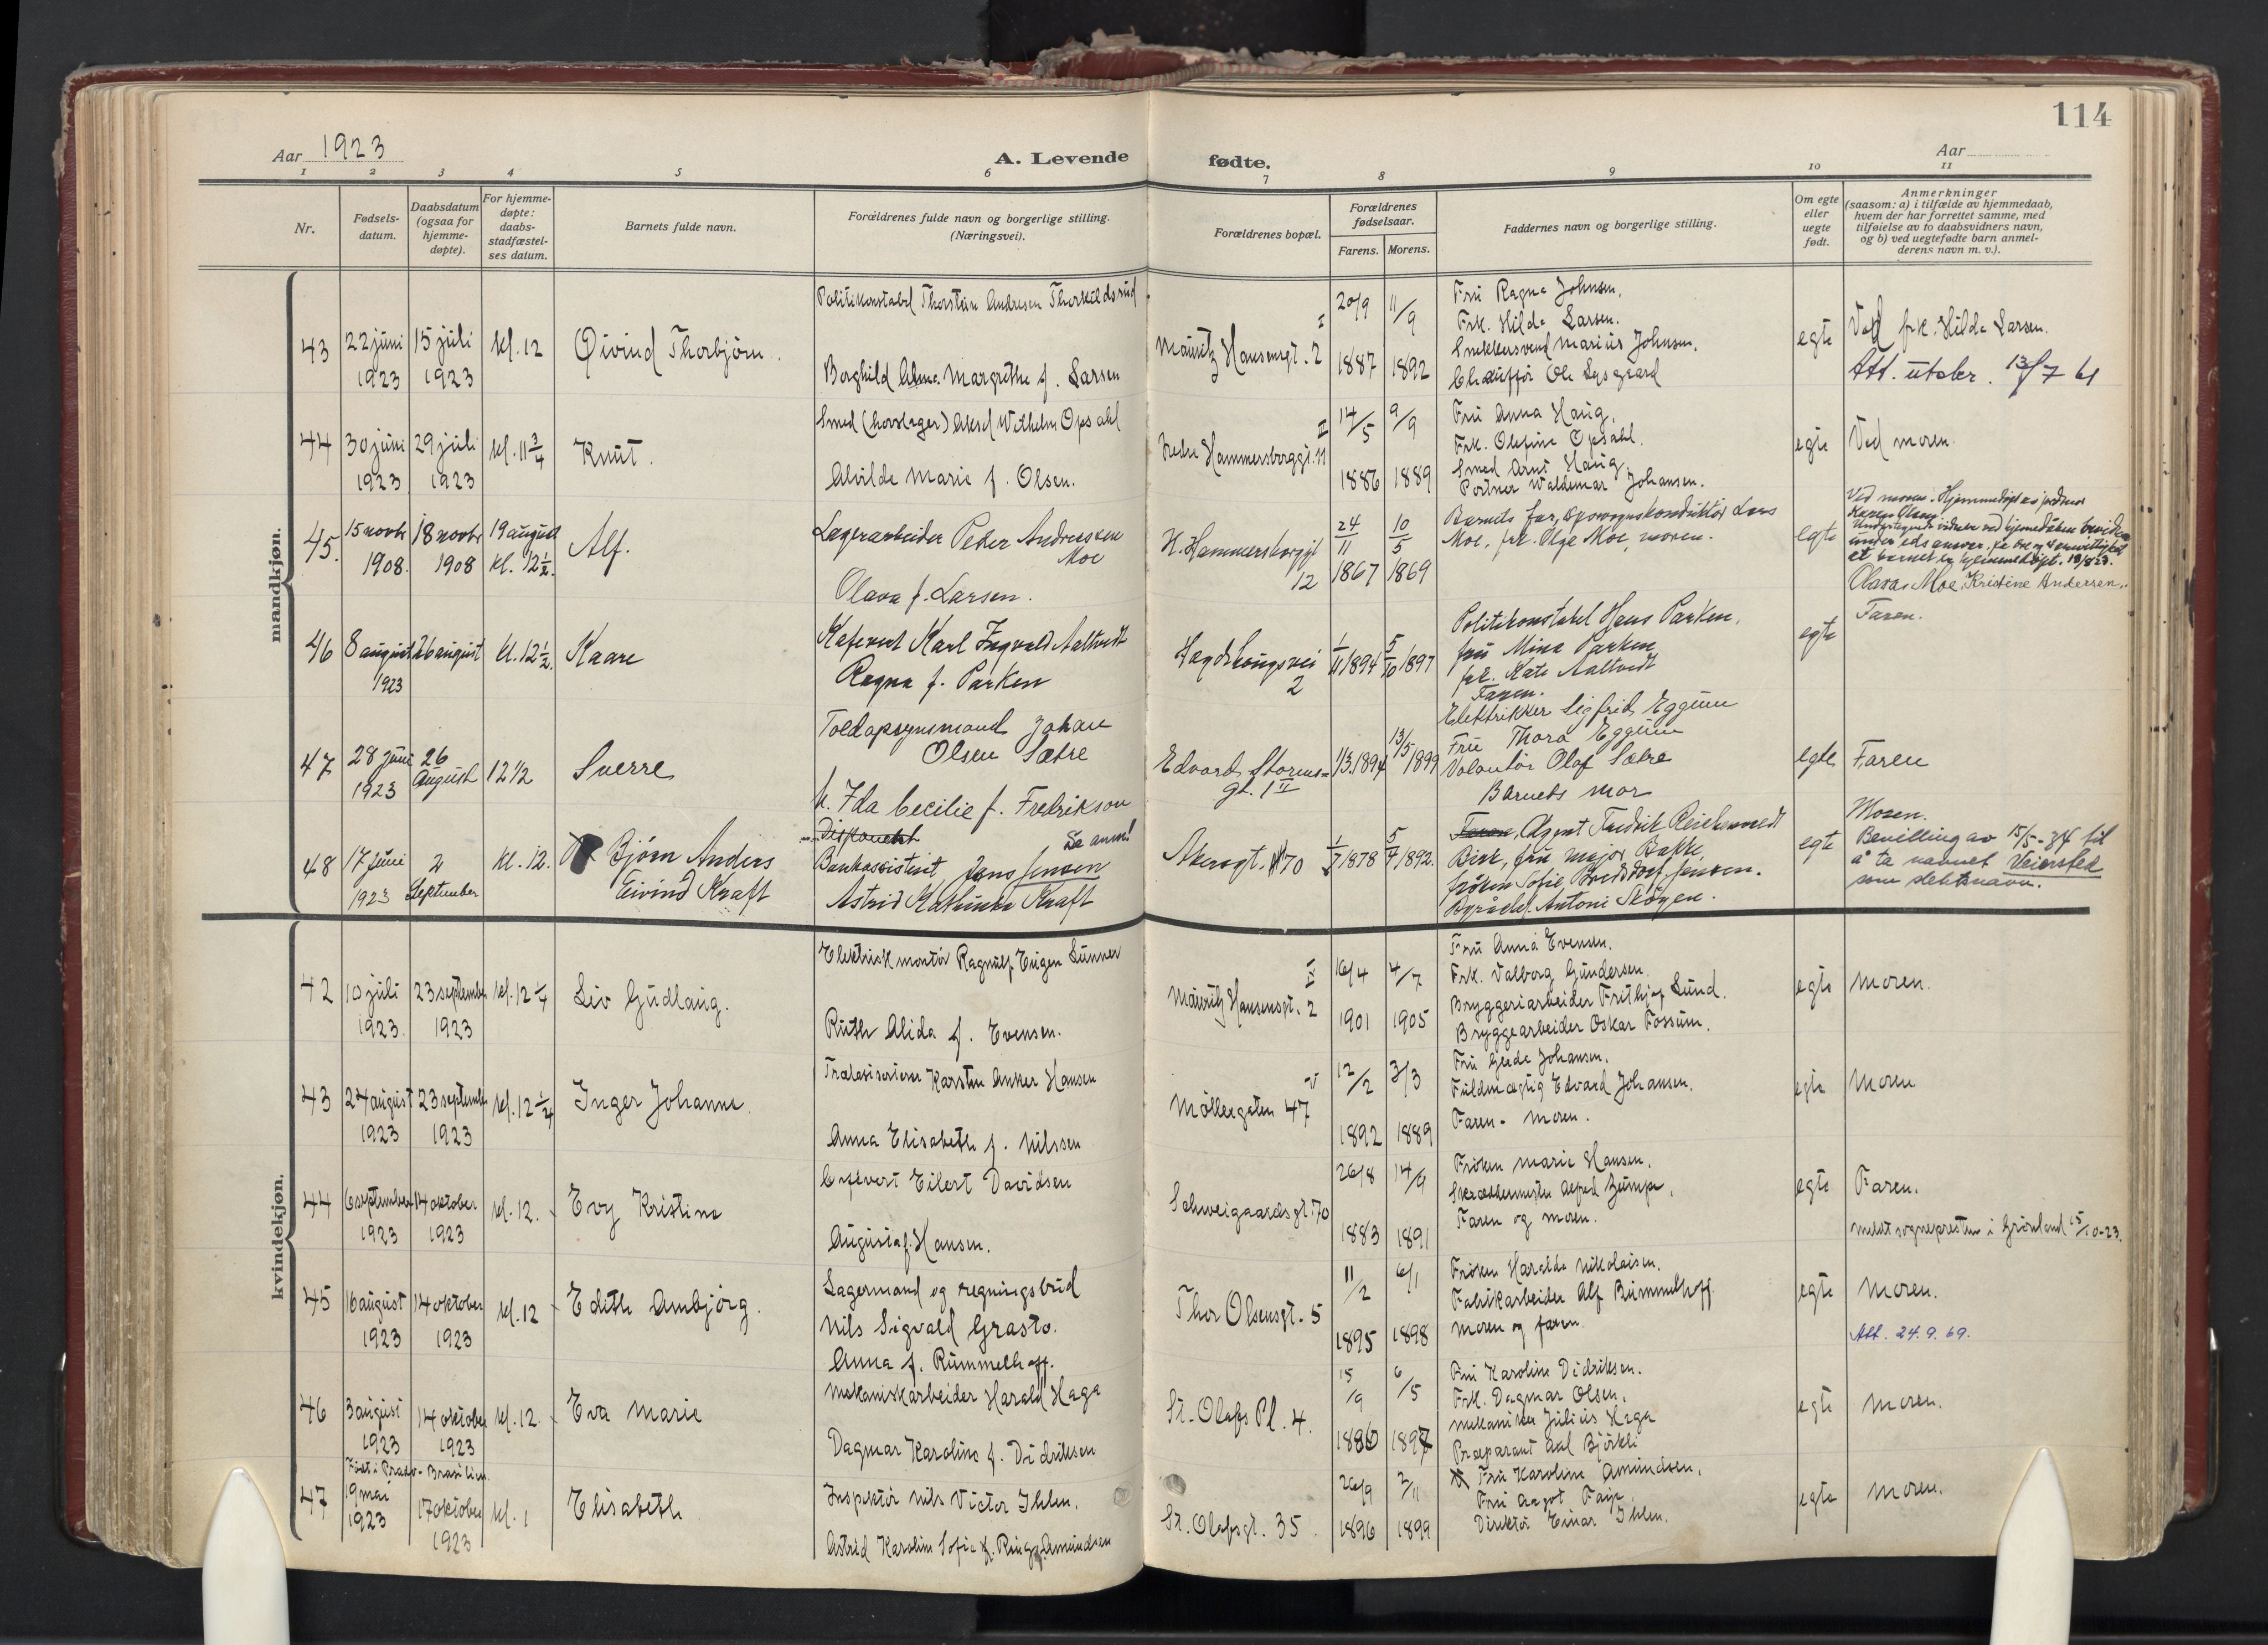 114
Aar 1923
A. Levende fødte.
Aar
1 2 3 4 5 6 7 8 9 10 11
Nr.
Fødsels-
datum.
Daabsdatum
(ogsaa for
hjemme-
døpte).
For hjemme-
døpte:
daabs-
stadfæstel-
ses datum.
Barnets fulde navn.
Forældrenes fulde navn og borgerlige stilling.
(Næringsvei).
Forældrenes bopæl.
Forældrenes
fødselsaar.
Farens. Morens.
Faddernes navn og borgerlige stilling.
Om egte
eller
uegte
født.
Anmerkninger
(saasom: a) i tilfælde av hjemmedaab,
hvem der har forrettet samme, med
tilføielse av to daabsvidners navn,
og b) ved uegtefødte barn anmel-
derens navn m. v.).
mandkjøn.
43
22 juni
1923
15 juli
1923
kl. 12
Øivind Thorbjørn.
Politikonstabel Thorstein Andresen Thorkildsrud
Borghild Alma Margrethe f. Larsen
Mauritz Hansensgt. 2 I
20/9
1887
11/9
1892
Fru Ragna Johnsen.
Frk. Hilda Larsen.
Snekkersvend Marius Johnsen.
Chauffør Ole Lysgaard
egte
Ved frk. Hilda Larsen.
Att. utster. 13/7 61
44
30 juni
1923
29 juli
1923
kl. 11 3/4
Knut.
Smed (hovslager) Aksel Wilhelm Opsahl
Alvilde Marie f. Olsen.
Nedre Hammersborggt. 11 II
14/5
1886
9/9
1889
Fru Anna Haug.
Frk. Olefine Opsahl.
Smed Arnt Haug
Portner Waldemar Johansen.
egte
Ved moren.
45.
15 novbr
1908.
18 novbr
1908
19 august
kl. 12 1/2.
Alf.
Lagerarbeider Peder Andreassen
Moe
Olava f. Larsen.
N. Hammersborggt
12
24/11
1867
10/5
1869
Barnets far, Lars
Moe, frk. Olga Moe, moren.
egte
Ved moren. Hjemmedøpt av jordmor
Karen Olsen.
at barnet er hjemmedøpt. 19/8 23.
Olava Moe, Kristine Andersen.
46
8 august
1923
26 august
kl. 12 1/2.
Kaare
Kafevert Karl Ingvald Aaltvedt
Ragna f. Parken
Hægdehaugsvei
2
1/11 1894
5/10 1897
Politikonstabel Hans Parken,
fru Mina Parken,
frk. Kate Aaltvedt
Faren.
egte
Faren.
47
28 juni
1923
26
August
12 1/2
Sverre
Toldopsynsmand Johan
Olsen Sætre
h. Ida Cecilie f. Fredrikson
Edvard Storms-
gt. 1 II
1/3.1894
13/5 1899
Elektrikker Sigfrid Eggum
Fru Thora Eggum
Volontør Olaf Sætre
Barnets mor
egte
Faren
48
17 juni
1923
2
September
kl. 12.
Bjørn Anders
Eivind Kraft
Disponent
Se anm!
Bankassistent Jens Jensen
Astrid Kathinka Kraft
Akersgt. 70
1/7 1878
5/4 1892.
Faren, Agent Fredrik Reichenvedt
Birk, fru major Bakke,
frøken Sofie Bredsdorf Jensen.
Antoni Skøyen.
egte
Moren.
Bevilling av 15/5-34 til
å ta navnet Veiersted
som slektsnavn.
kvindekjøn.
42
10 juli
1923.
23 september
1923
kl. 12 1/4
Liv Gudlaug.
Elektriskmontør Ragnulf Eugen Sunner
Ruth Alida f. Evensen.
Mauritz Hansensgt. 2
16/4
1901
4/7
1905
Fru Anna Evensen.
Frk. Valborg Gundersen.
Bryggeriarbeider Frithjof Lund.
Bryggearbeider Oskar Fossum.
egte
Moren.
43
24 august
1923
23 september
1923
kl. 12 1/4
Inger Johanne.
Karsten Anker Hansen
Anna Elisabeth f. Nilssen
Møllergaten 47 V
12/2
1892
3/3
1889
Fru Johansen.
Fuldmægtig Edvard Johansen.
Faren - moren.
egte
Moren
44
6 september
1923
14 oktober
1923
kl. 12.
Evy Kristine
Cafevert Eilert Davidsen
Augusta f. Hansen.
Schweigaardsgt. 70
26/8
1883
14/9
1891
Frøken Marie Hansen.
Skræddermester Alfred Zumpe.
Faren og moren.
egte
Faren.
meldt sognepresten i Grønland 15/10-23.
45
16 august
1923
14 oktober
1923
kl. 12
Edith Ambjørg.
Lagermand og regningsbud
Nils Sigvald Grasto.
Anna f. Rummelhoff.
Thor Olsensgt. 5
11/2
1895
6/1
1898
Frøken Haralda Nikolaisen.
Fabrikarbeider Alf Rummelhoff
Moren og faren.
egte
Moren.
Att. 24.9.69.
46
3 august
1923
14 oktober
1923
kl. 12.
Eva Marie
Mekaniskarbeider Harald Haga
Dagmar Karoline f. Didriksen
St. Olafs Pl. 4.
15/9
1896
6/5
1897
Fru Karoline Didriksen.
Frk. Dagmar Olsen.
Mekaniker Julius Haga
Præparant Aal Bjørkli
egte
Moren.
47
Født i - Brasilien.
19 mai
1923
17 oktober
1923
kl. 1
Elisabeth
Inspektør Nils Victor Ihlen.
Astrid Karolin Sofie f. Ring Amundsen
St. Olafsgt. 35.
26/9
1896
2/11
1899
Fru Karoline Amundsen.
Fru Aagot Faye.
Direktør Einar Ihlen.
egte
Moren.